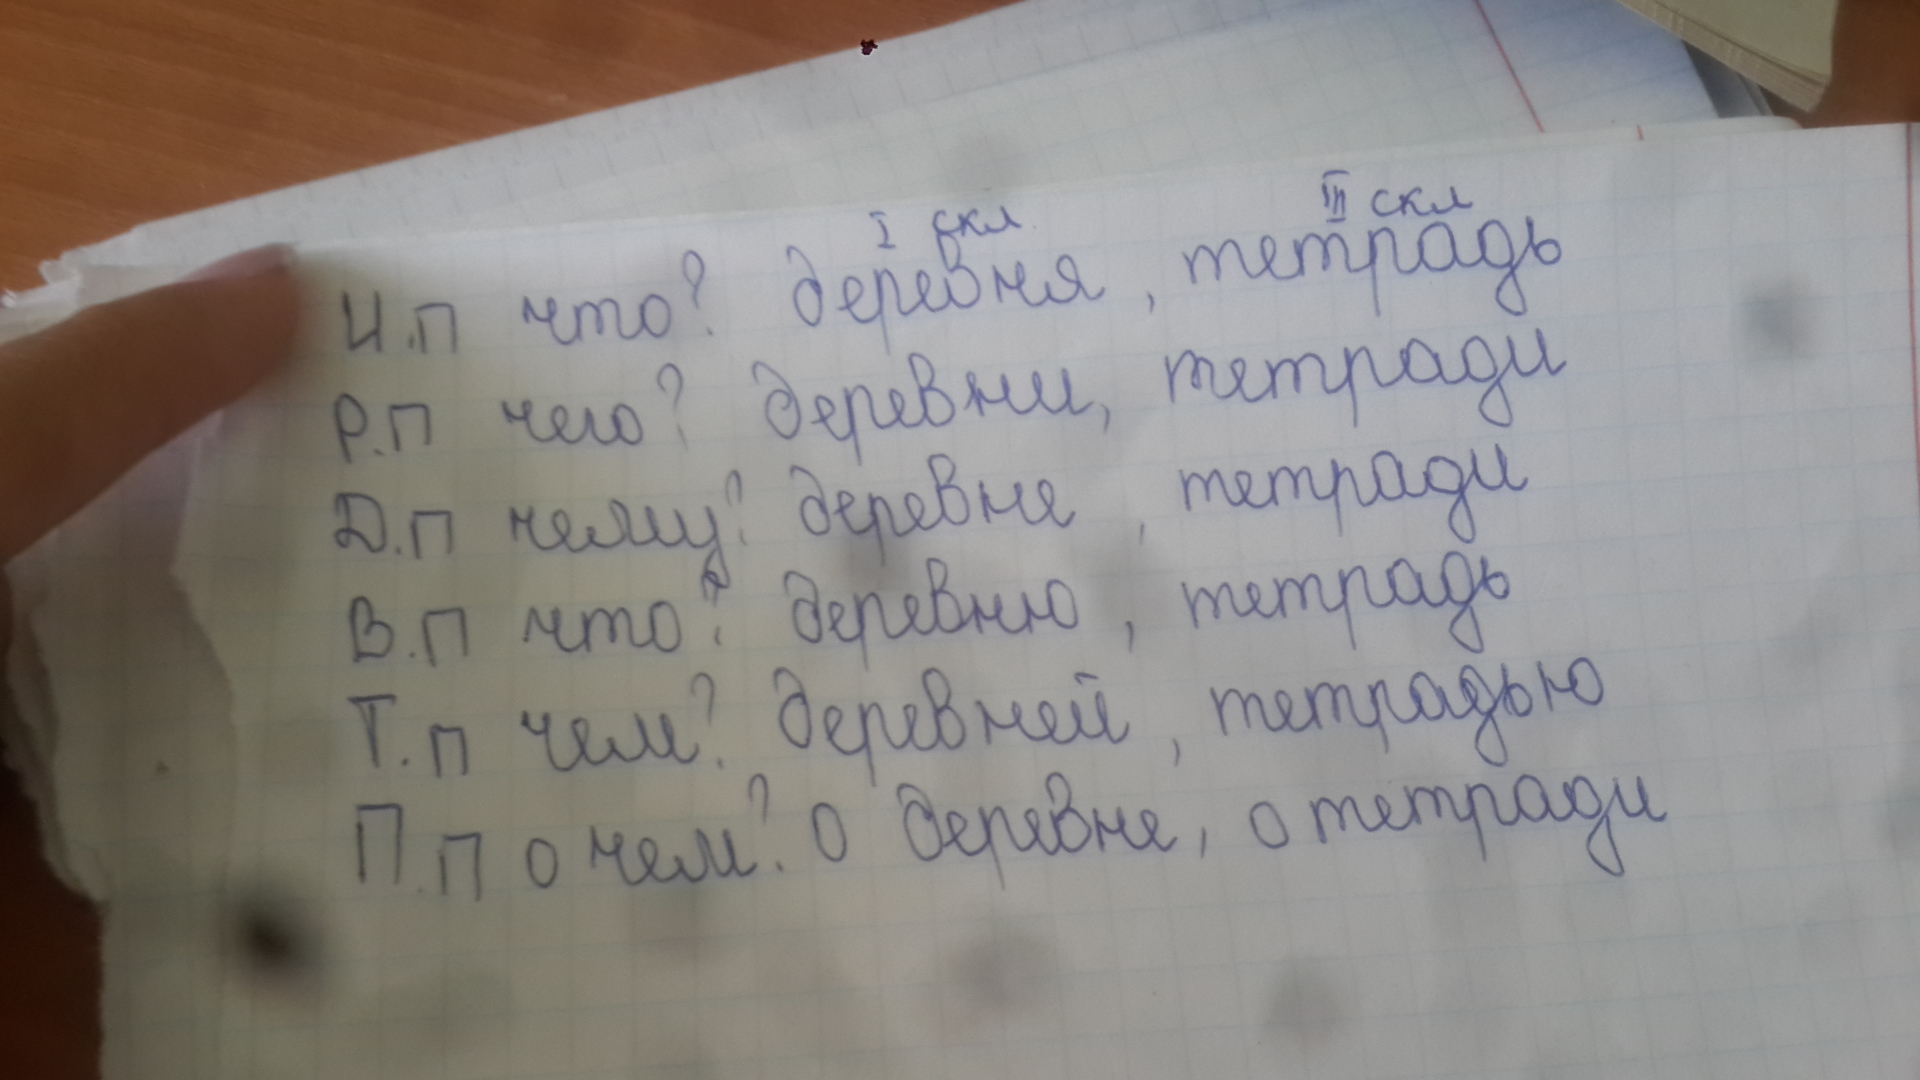 I скл III скл
И.п что? деревня, тетрадь
Р.п чего? деревни, тетради
Д.п чему? деревне, тетради
В.п что? деревню, тетрадь
Т.п чем? деревней, тетрадью
П.п о чем? о деревне, о тетради